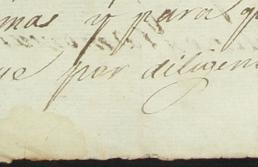 mas y para q
ue por diligen